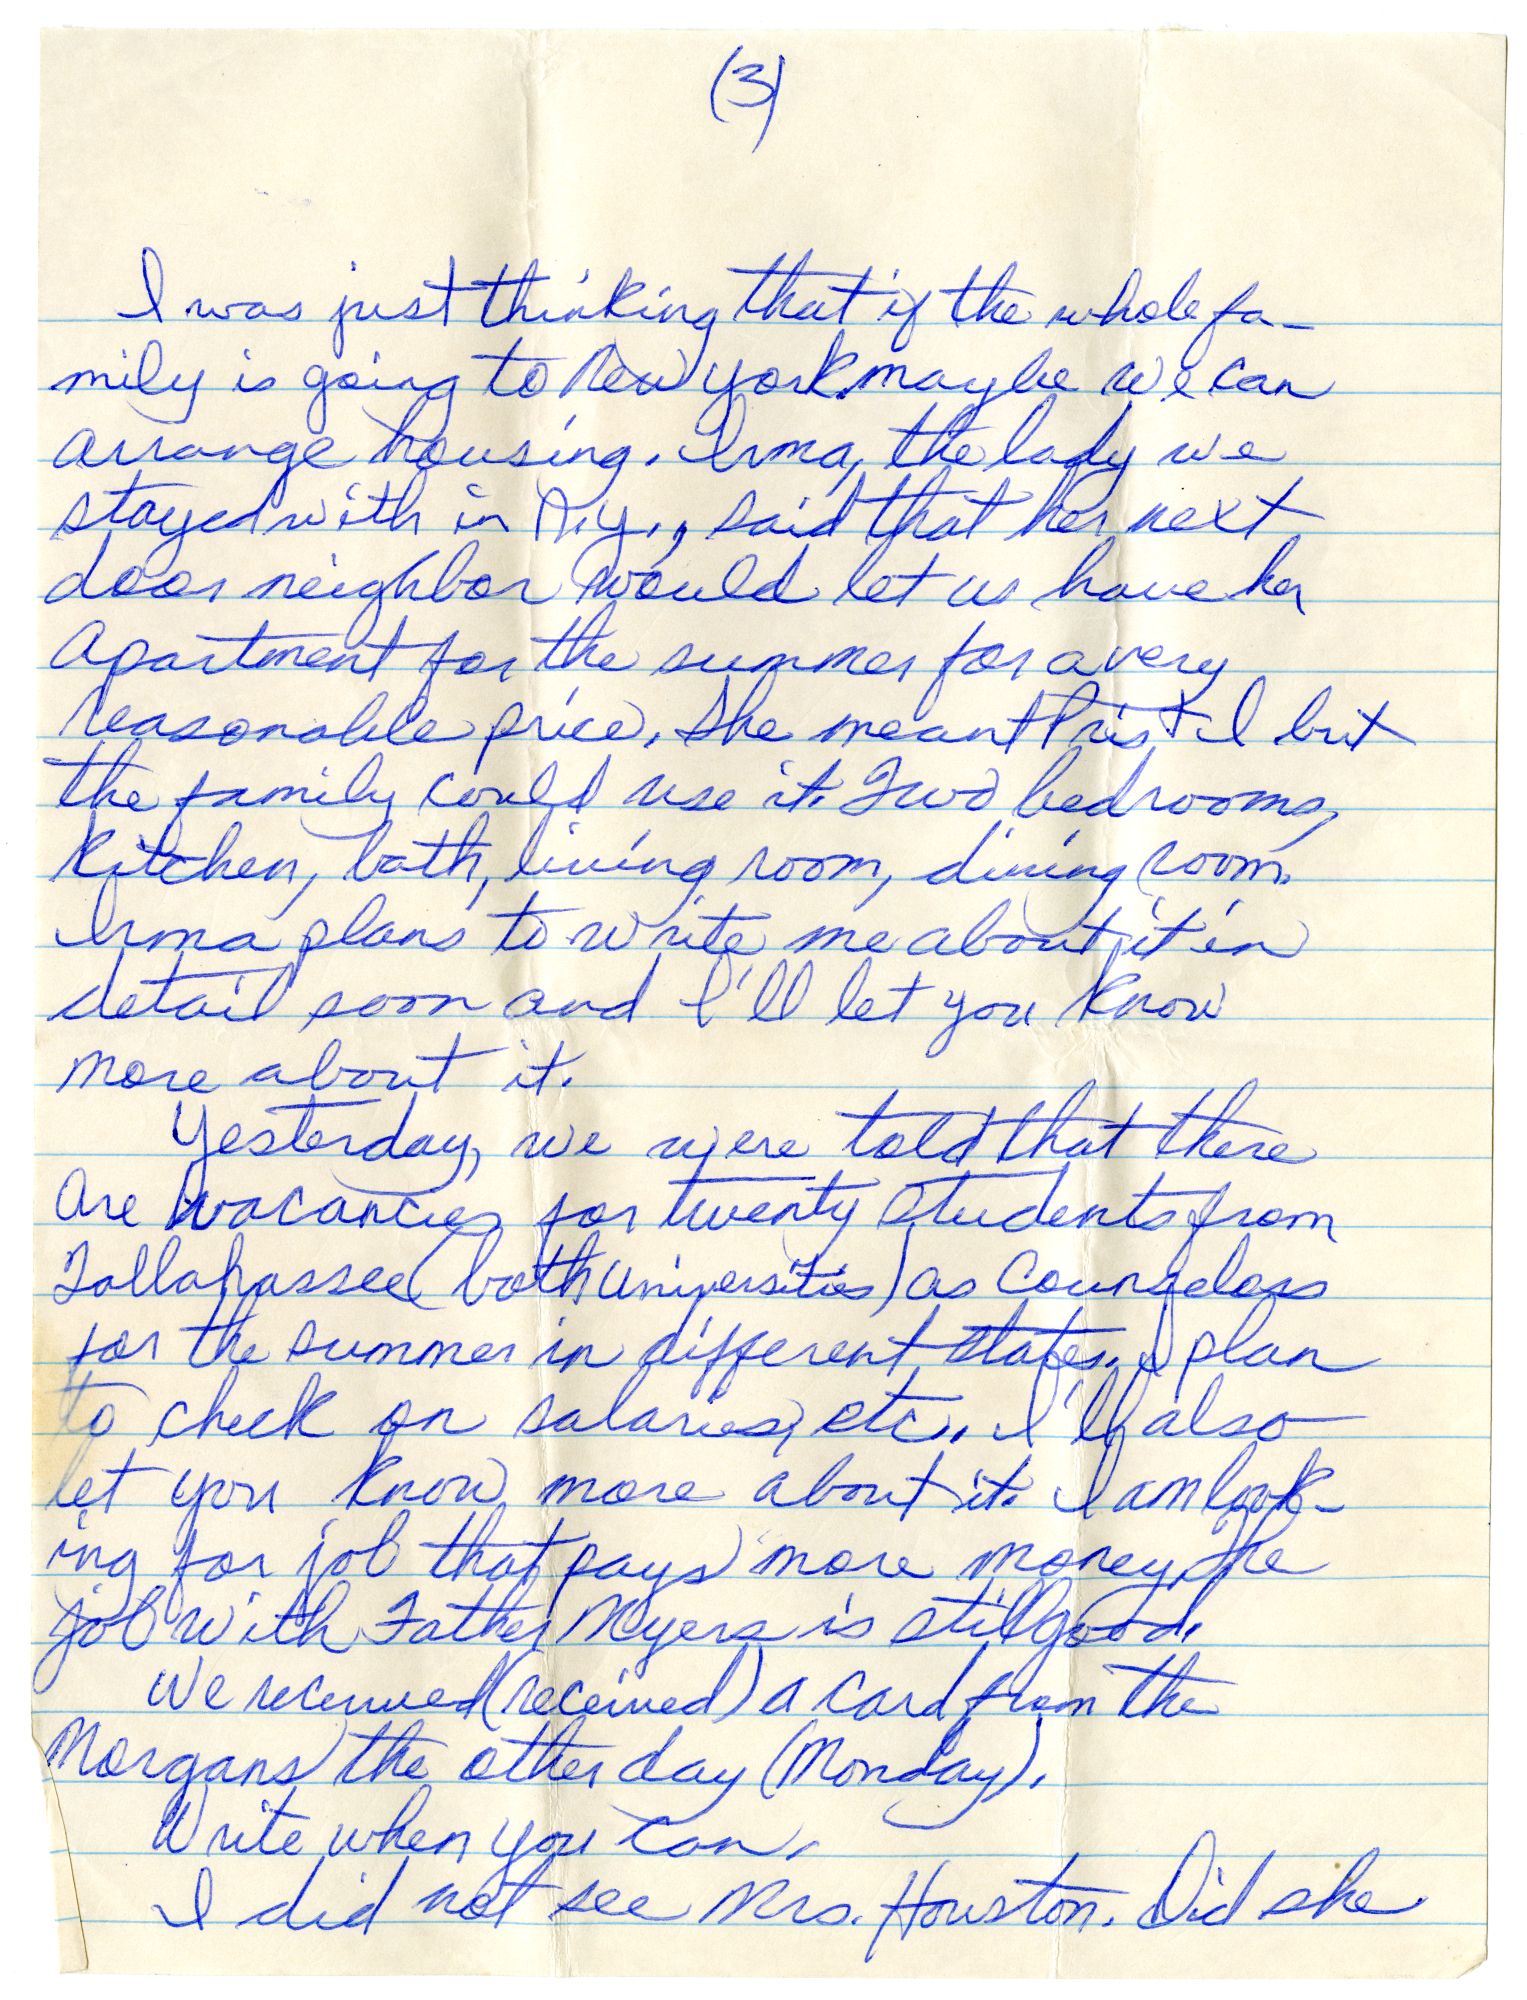 (3)
I was just thinking that if the whole fa-
mily is going to New York maybe we can
arrange housing. Irma, the lady we
stayed with in N.Y., said that her next
door neighbor would let us have her
apartment for the summer for a very
reasonable price. She meant Pris + I but
the family could use it. Two bedrooms,
kitchen, bath, living room, dining room.
Irma plans to write me about it in
detail soon and I'll let you know
more about it.
Yesterday, we were told that there
are vacancies for twenty students from
Tallahassee (both universities) as counselors
for the summer in different states. I plan
to check on salaries, etc. I'll also
let you know more about it. I am look-
ing for job that pays more money, the
job with Father Myers is still good.
We recieved (received) a card from the
Morgans the other day (Monday).
Write when you can.
I did not see Mrs. Houston. Did she